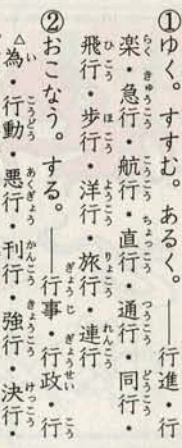 ①ゆく。すすむ。あるく。――行進・行
楽・急行・航行・直行・通行・同行・
飛行・歩行・洋行・旅行・連行
②おこなう。する。――行事・行政・行
為・行動・悪行・刊行・強行・決行・